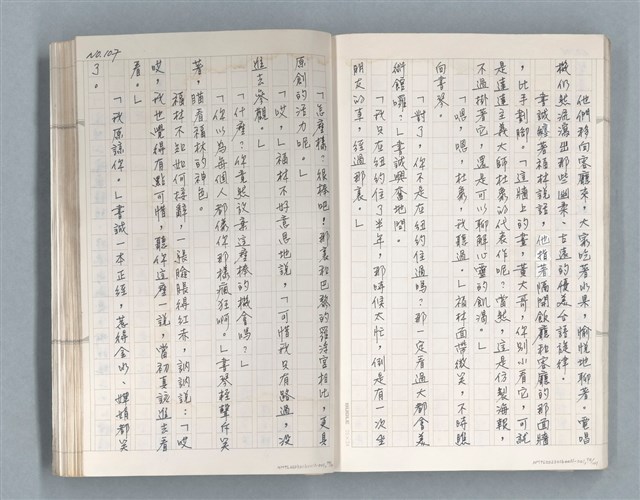 他們移向客廳來，大家吃著水果，愉悅地聊著。電唱
機仍然流瀉出那些幽柔、古遠的優美台語旋律。
書誠歸著福林說話，他指著隔開飯廳和客廳的那面牆
，比手劃腳。「這牆上的畫，黃大哥，你別小看它，可就
是達達主義大師杜象的代表作呢？當然，這是仿製海報，
不過掛著它，還是可以聊解心靈的飢渴。」
「嗯，嗯，杜象，我聽過。」福林面帶微笑，不時瞧
向書琴。
「對了，你不是在紐約住過嗎？那一定看過大都會美
術館囉？」書誠興奮地問。
「我只在紐約住了半年，那時候太忙，倒是有一次坐
朋友的車，經過那裏。」
「怎麼樣？很棒吧！那裏和巴黎的羅浮宮相比，更具
原創的活力呢。」
「哎，」福林不好意思地說，「可惜我只有路過，沒
進去參觀。」
「什麼？你竟然放棄這麼棒的機會嗎？」
「你以為每個人都像你那樣瘋狂啊。」書琴輕聲斥笑
著，瞄看福林的神色。
福林不知如何接辭，一張臉脹得紅赤，訥訥說：「哎
哎，我也覺得有點可惜，聽你這麼一說，當初真該進去看
看。」
「我原諒你。」書誠一本正經，惹得金水、嬋娟都笑
了。
No. 107